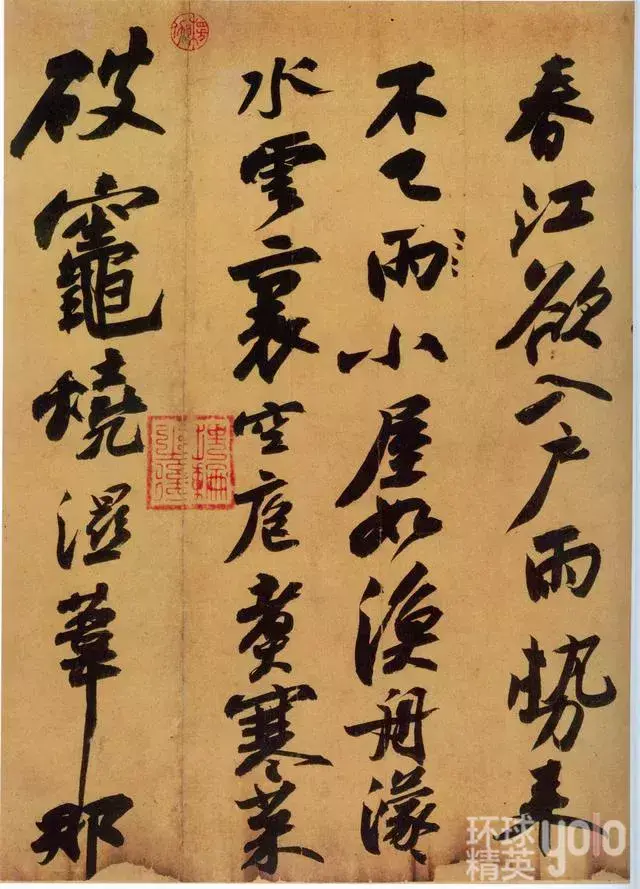 春江欲入戶雨勢來
不已雨小屋如漁舟濛々
水雲裏空庖煮寒菜
破竈燒濕葦那
环球
精英
yolo